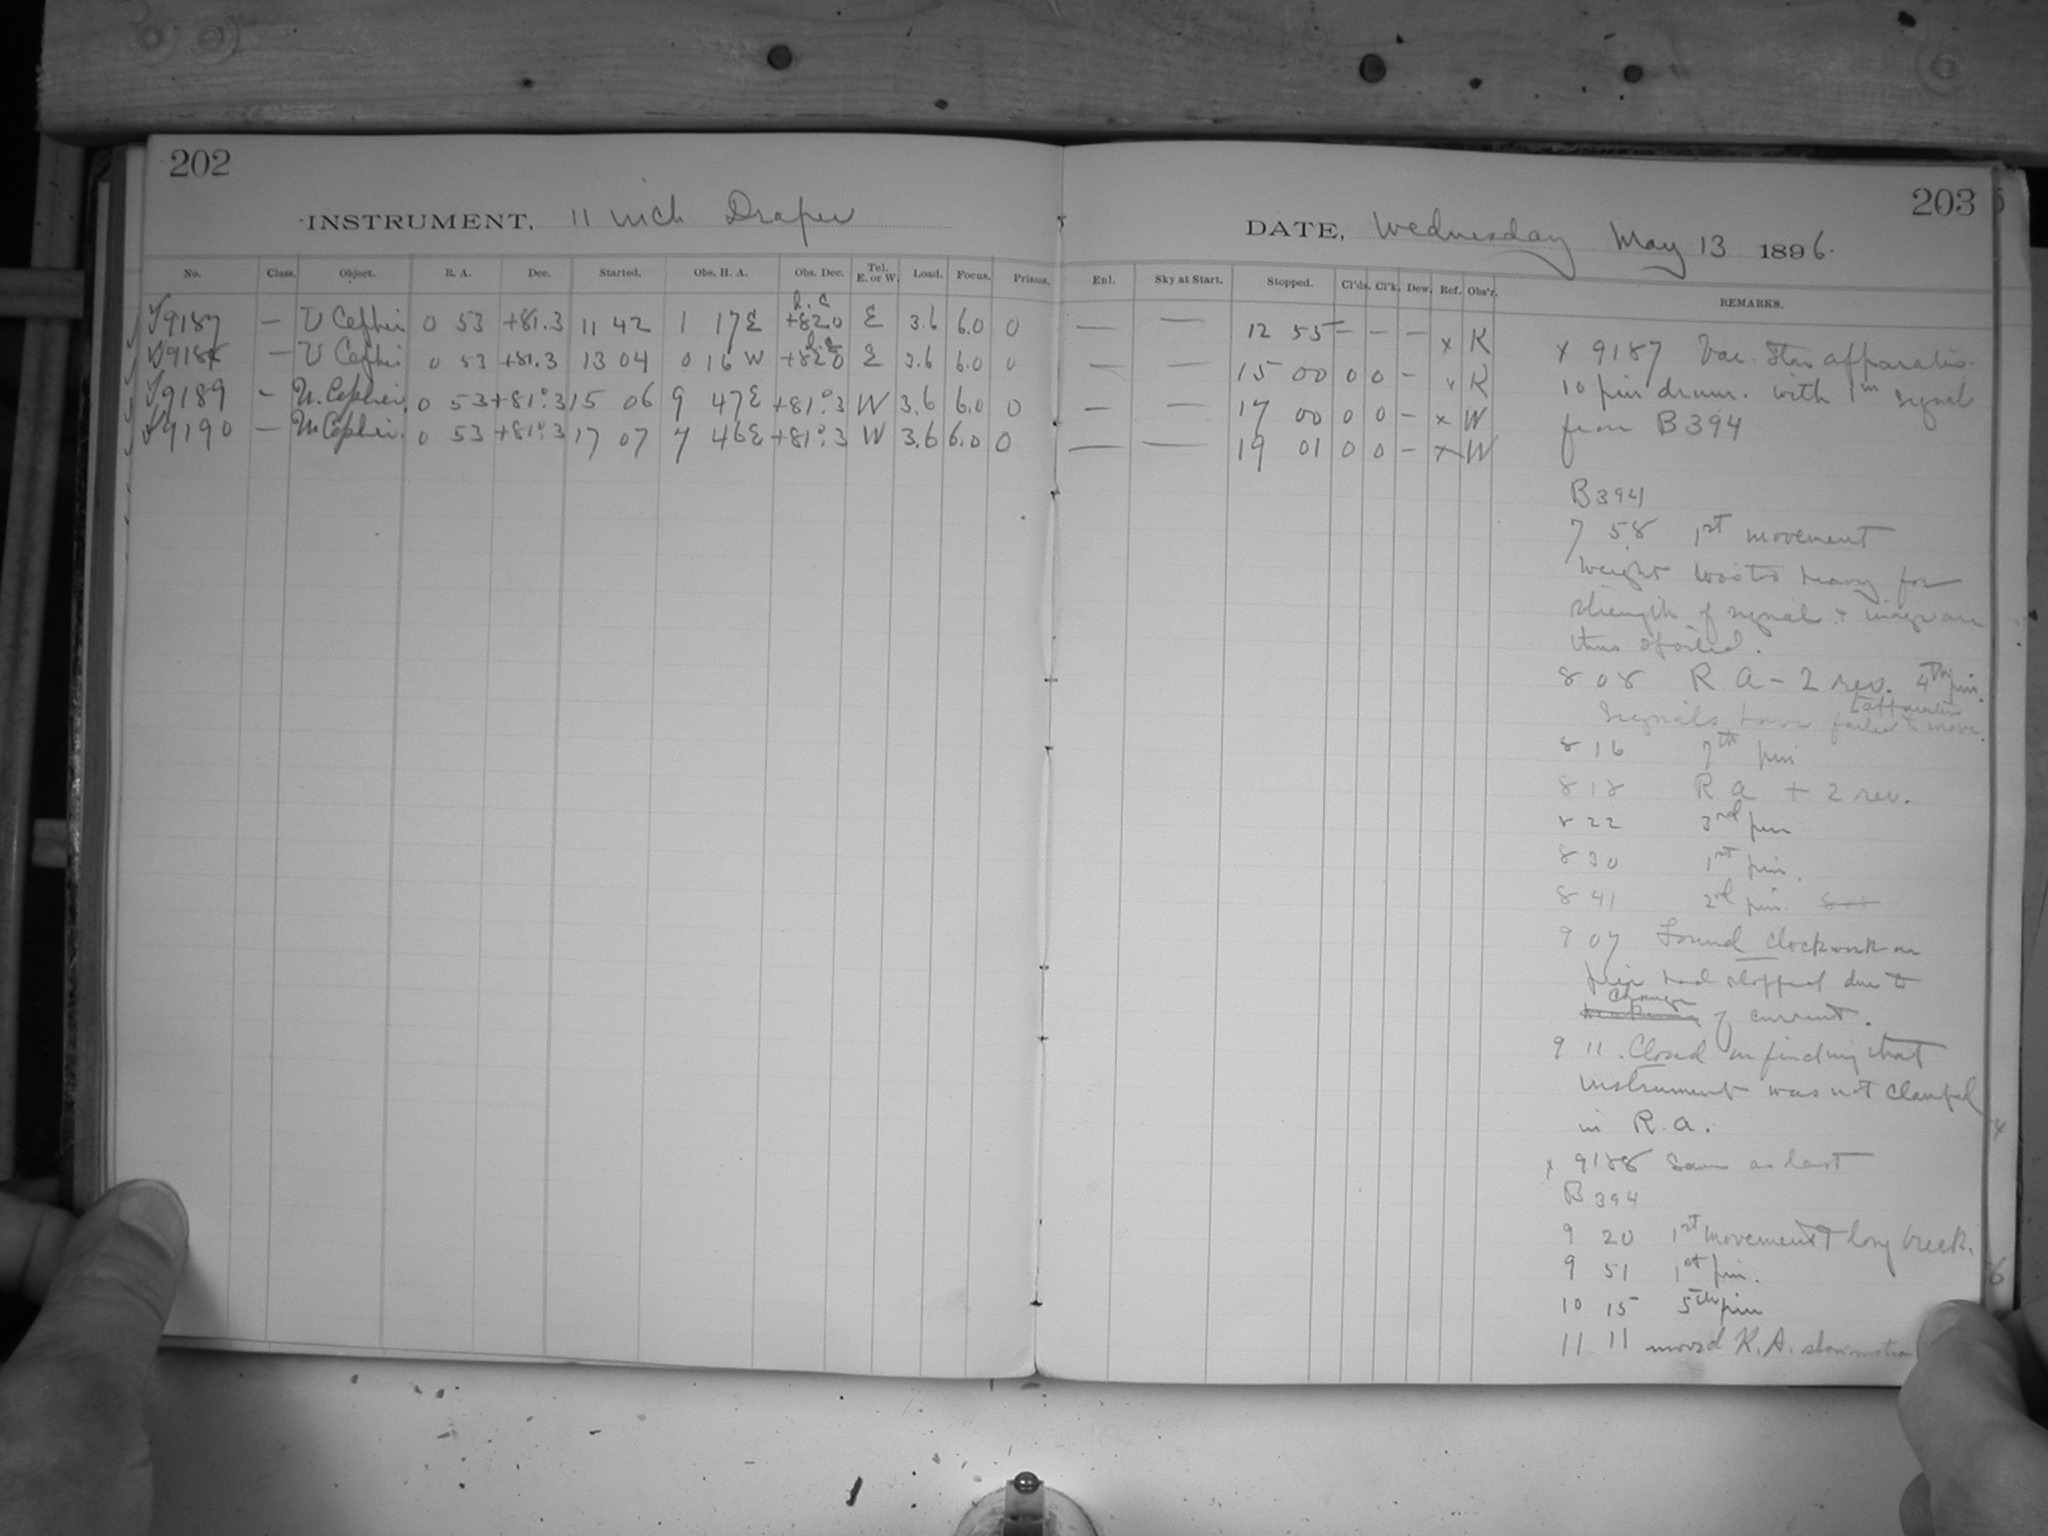 202
INSTRUMENT, 11 inch Draper
No. Class. Object. R. A. Dec. Started. Obs. H. A. Obs. Dec. Tel. E. or W. Load. Focus. Prisms.
9187 — U Cephei 0 53 +81.3 11 42 1 17 E +82.0 E 3.6 6.0 0
9188 — U Cephei 0 53 +81.3 13 04 0 16 W +82.0 E 3.6 6.0 0
9189 — U. Cephei. 0 53 +81°.3 15 06 9 47 E +81°.3 W 3.6 6.0 0
9190 — U. Cephei. 0 53 +81°.3 17 07 7 46 E +81°.3 W 3.6 6.0 0
203
DATE, Wednesday May 13 1896.
Enl. Sky at Start. Stopped. Cl'ds. Cl'k. Dew. Ref. Obs'r. REMARKS.
— — 12 55 — — — x K
— — 15 00 0 0 — x K
— 17 00 0 0 — x W
— — 19 01 0 0 — x W
x 9187 Var. Star apparatus.
10 pin drum. with 1m signal
from B394
B394
7 58 1st movement
Weight was too heavy for
strength of signal & images are
thus spoiled.
8 08 R A - 2 rev. 4th pin.
Signals have failed to move
apparatus
8 16 7th pin
8 18 R A + 2 rev.
8 22 3rd pin
8 30 1st pin.
8 41 2d pin.
9 07 Found clockwork on
pier had stopped due to
change of current.
9 11. Closed on finding that
instrument was not clamped
in R.A.
x 9188 Same as last
B394
9 20 1st movement & long break.
9 51 1st pin.
10 15 5th pin
11 11 moved R.A. slow motion